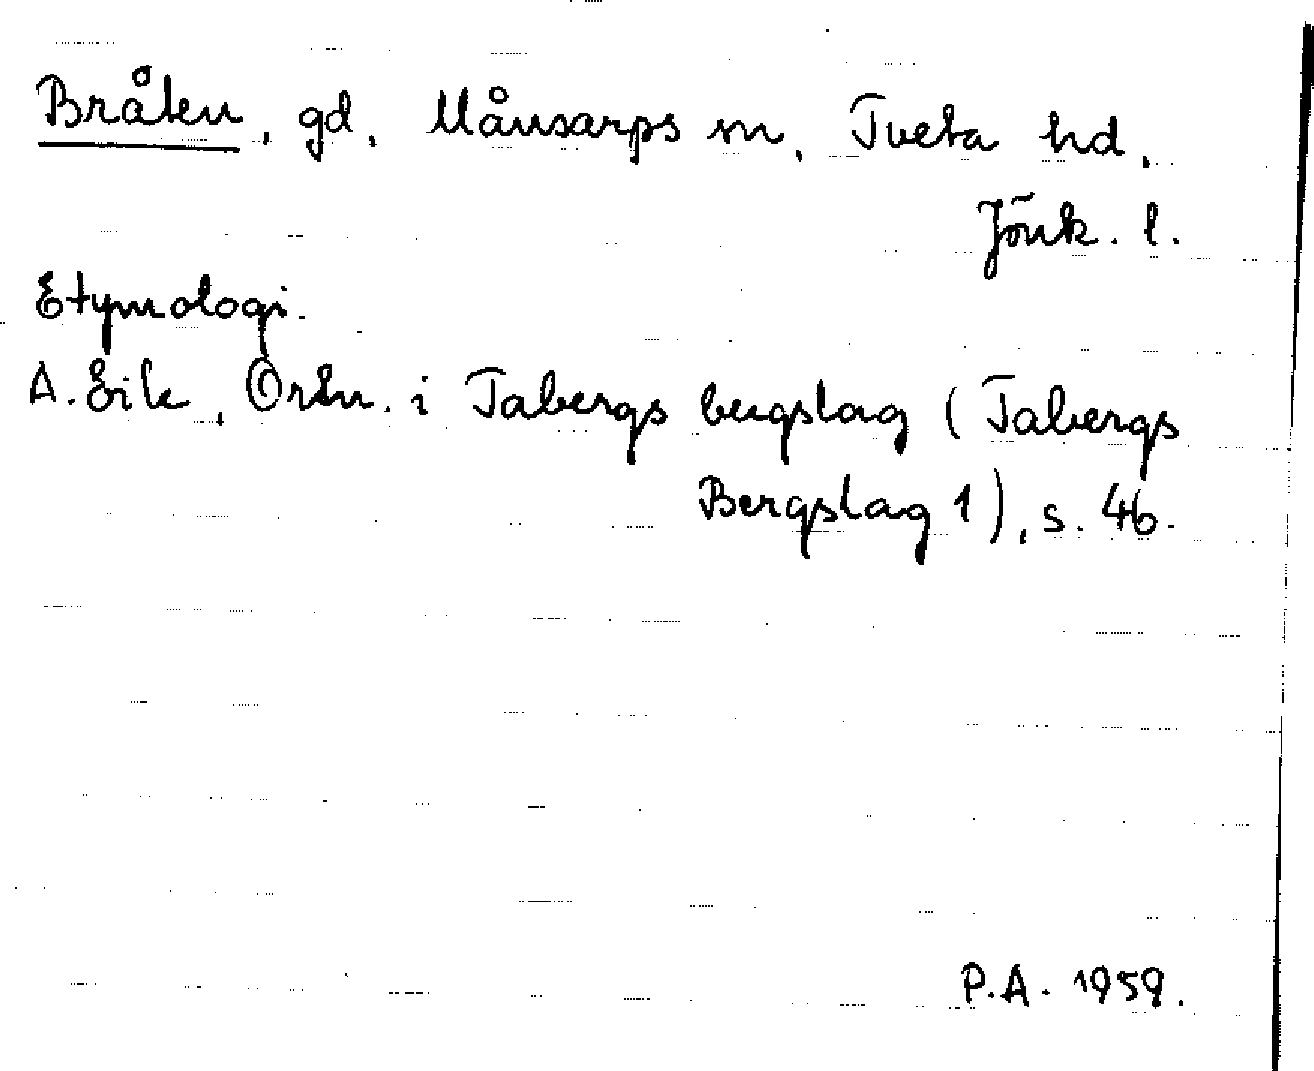 Bråten, gd, Månsarps sn, Tveta hd,
Jönk. l.
Etymologi.
A. Eik, Ortn. i Tabergs bergslag (Tabergs
Bergslag 1), s. 46.
P.A. 1959.